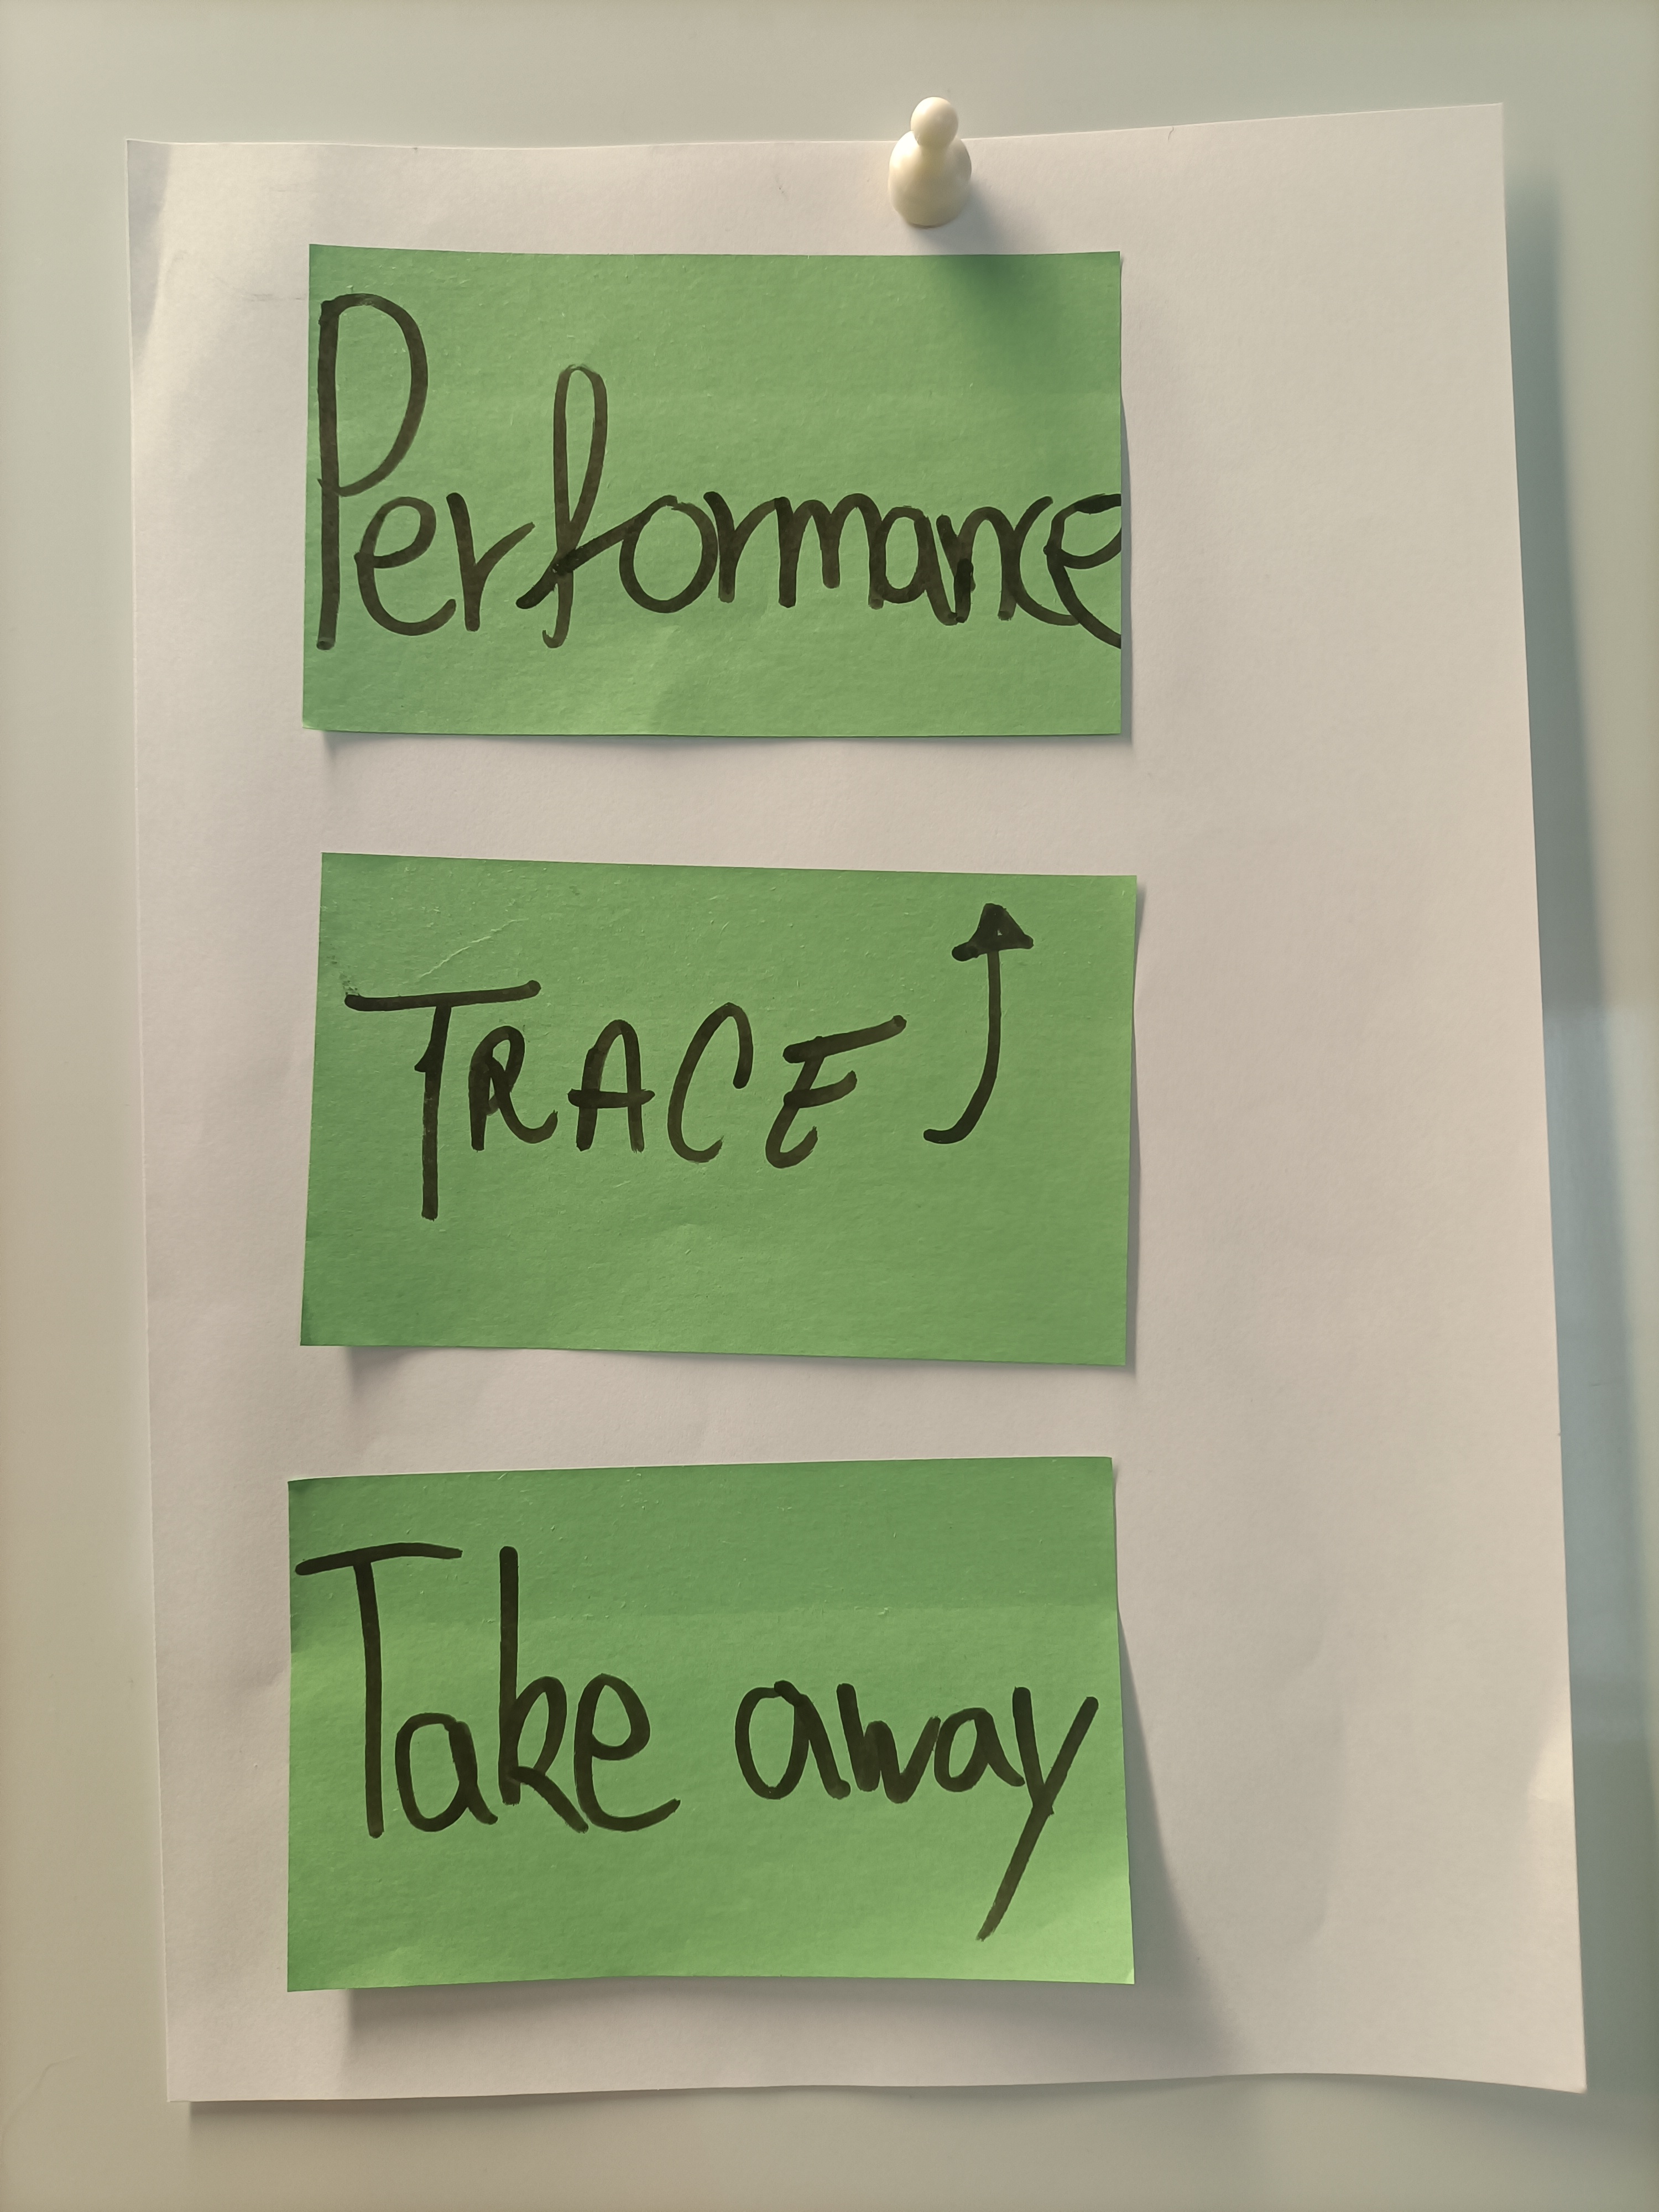 Performance
TRACE ⤴
Take away